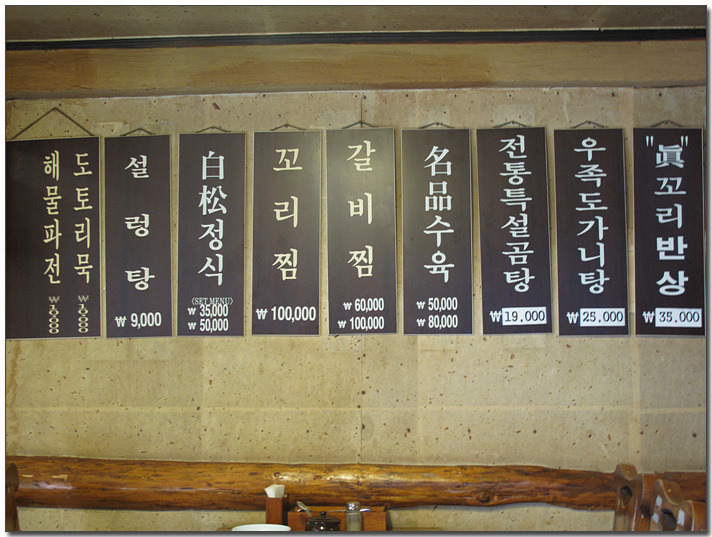 해물파전
도토리묵
설렁탕
₩ 9,000
白松정식
(SET MENU)
₩ 35,000
₩ 50,000
꼬리찜
₩ 100,000
갈비찜
₩ 60,000
₩ 100,000
名品수육
₩ 50,000
₩ 80,000
전통특설곰탕
₩ 19,000
우족도가니탕
₩ 25,000
"眞"꼬리반상
₩ 35,000